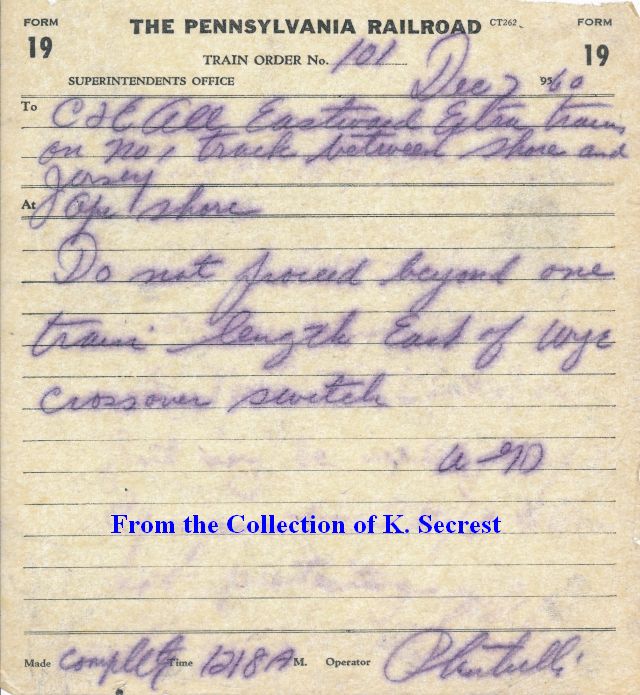 FORM 19 THE PENNSYLVANIA RAILROAD CT262 FORM 19
TRAIN ORDER No. 101
SUPERINTENDENTS OFFICE Dec 7 1960
To C&E All Eastward Extra trains
on no 1 track between shore and
Jersey
At Opr shore
Do not proceed beyond one
train length East of wye
crossover switch
From the Collection of K. Secrest
Made complete Time 1218 A M. Operator